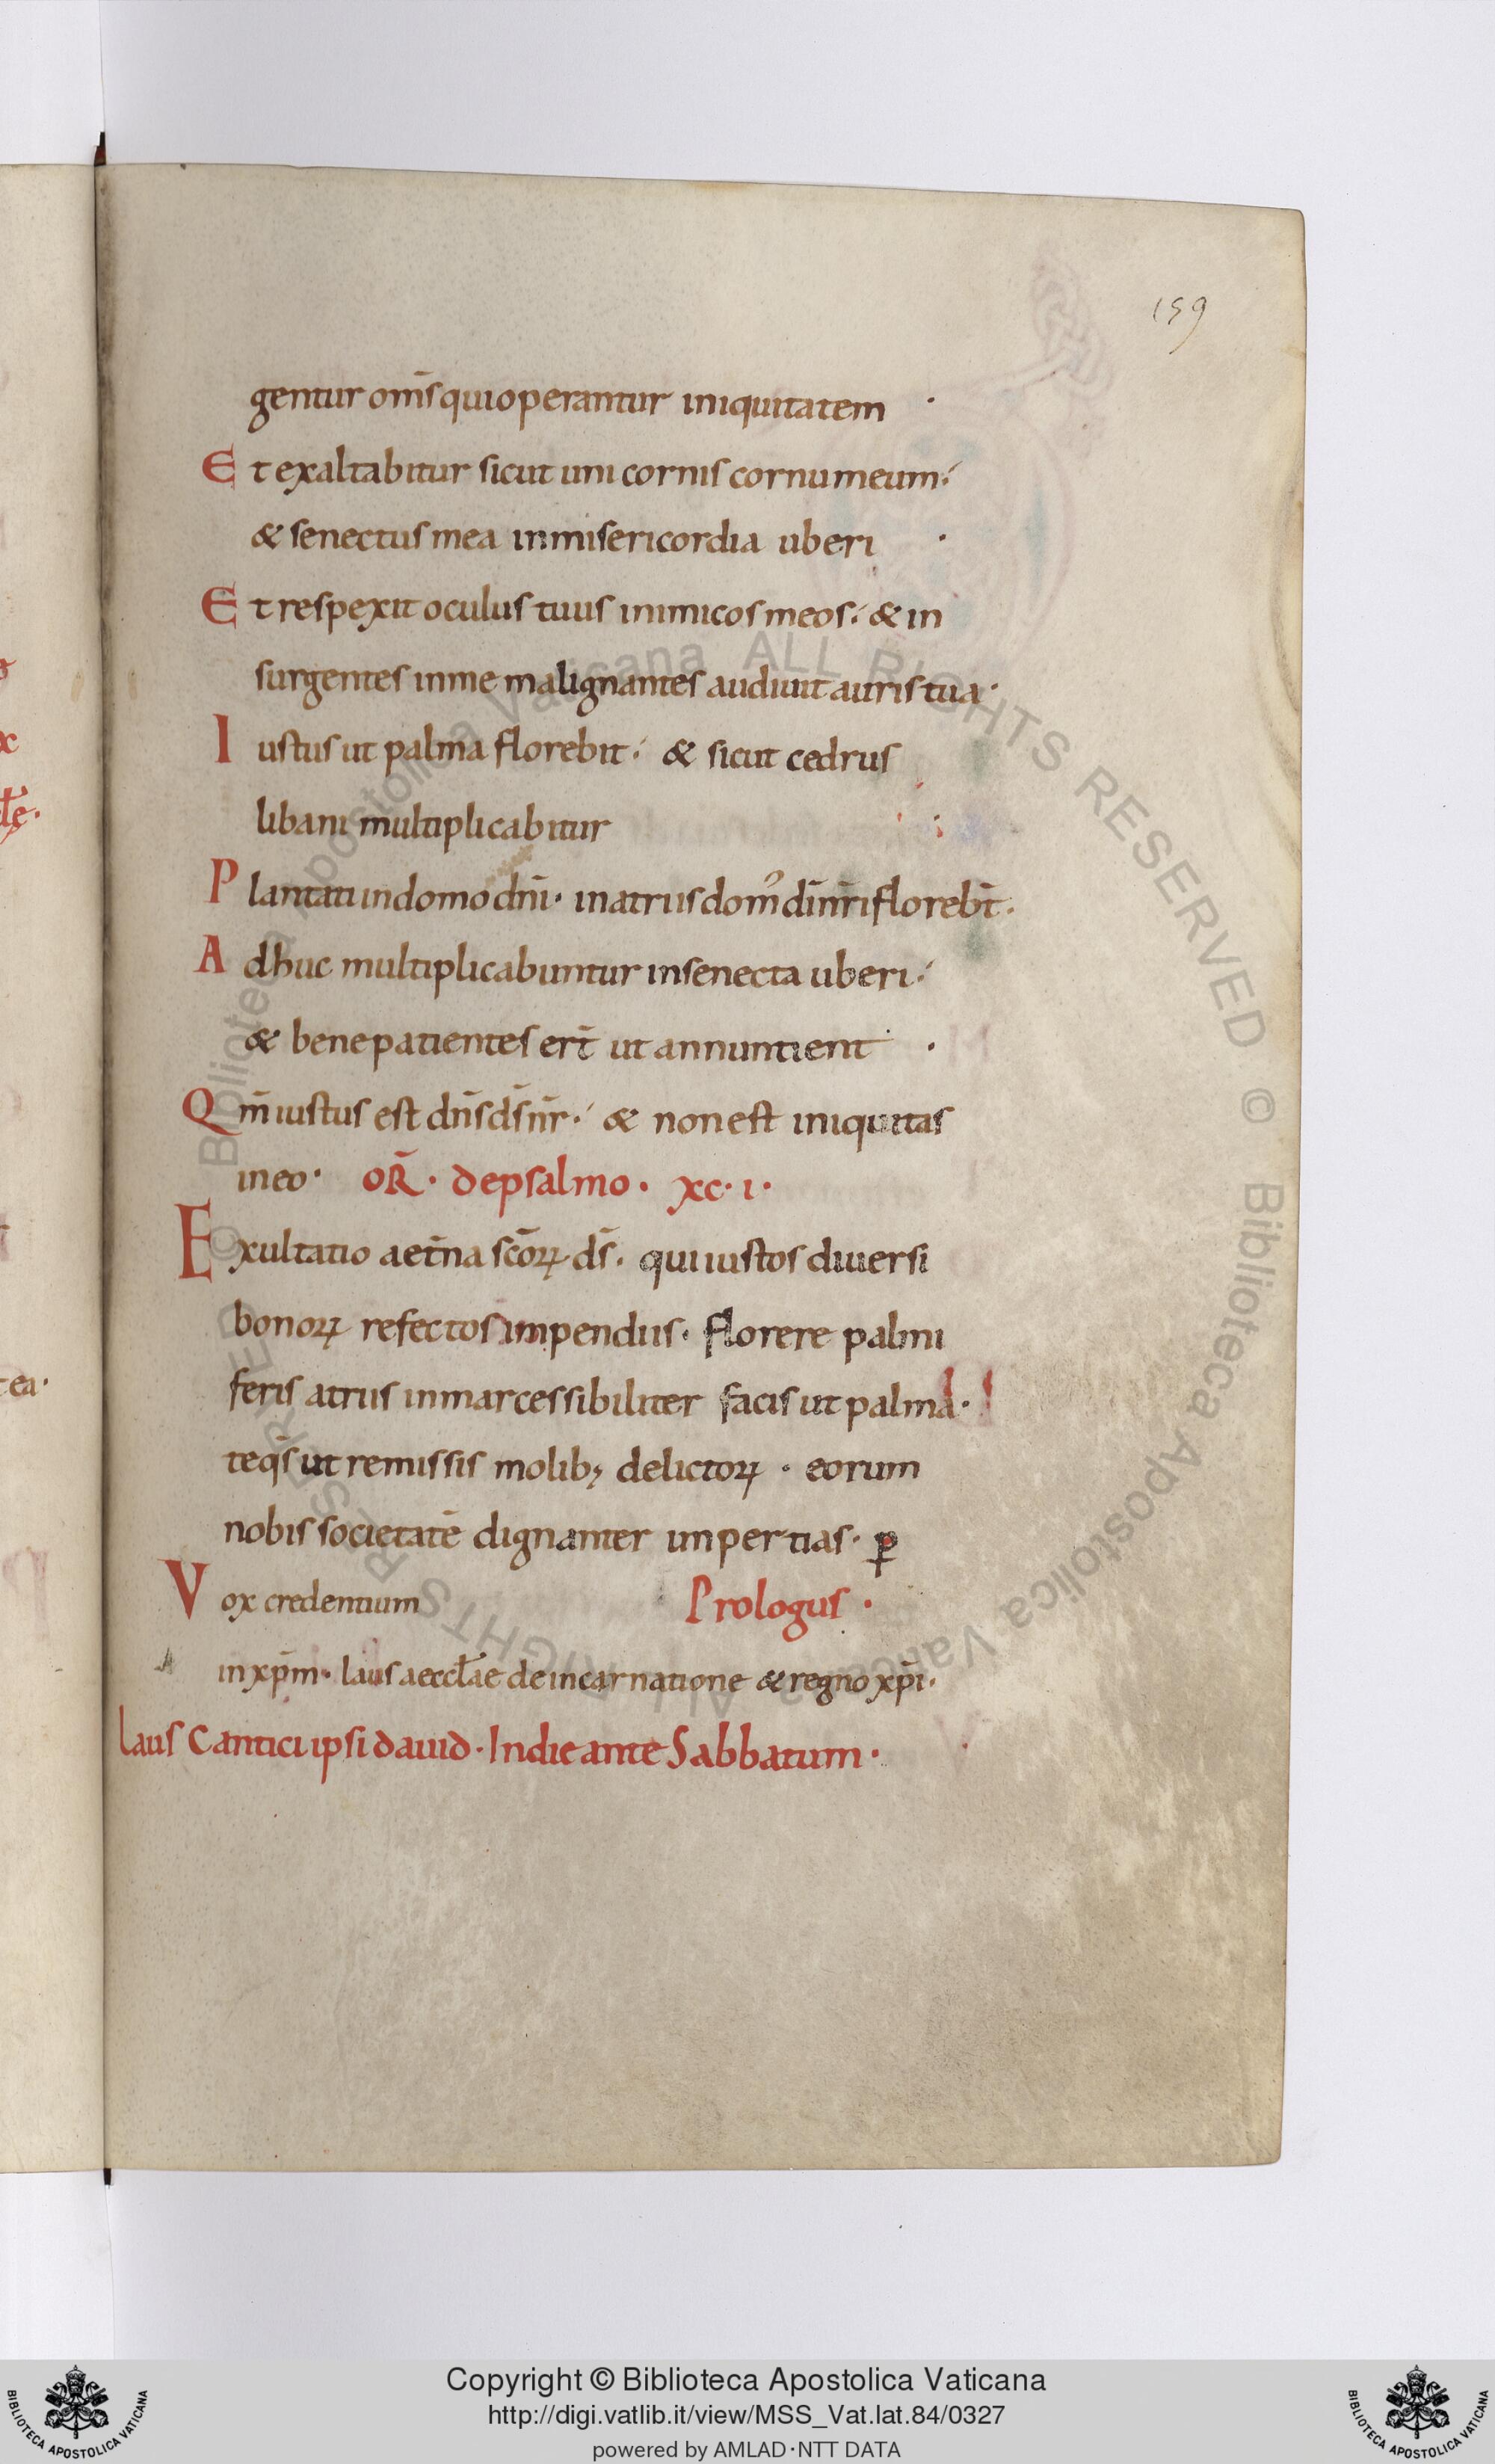 159
gentur om̄s qui operantur iniquitatem ·
Et exaltabitur sicut unicornis cornu meum·
& senectus mea in misericordia uberi ·
Et respexit oculus tuus inimicos meos· & in
surgentes in me malignantes audiuit auris tua·
Iustus ut palma florebit· & sicut cedrus
libani multiplicabitur
Plantati in domo dn̄i· in atriis dom' dī nr̄i florebt̄·
Adhuc multiplicabuntur in senecta uberi·
& bene patientes ert̄ ut annuntient ·
Qm̄ iustus est dn̄s ds̄ nr̄· & non est iniquitas
in eo· OR̄· de psalmo· xc·i·
Exultatio aet̄na sc̄oꝝ ds̄· qui iustos diuersi
bonoꝝ refectos impendiis· florere palmi
feris atriis inmarcessibiliter facis ut palma·
teqs̄ ut remissis molib; delictoꝝ · eorum
nobis societatē dignanter impertias· p̄
Vox credentium Prologus ·
in xp̄m· laus aeccl̄ae de incarnatione & regno xp̄i·
Laus Cantici ipsi dauid· In die ante Sabbatum·
tea·
© Biblioteca Apostolica Vaticana ALL RIGHTS RESERVED © Biblioteca Apostolica Vaticana ALL RIGHTS RESERVED
Copyright © Biblioteca Apostolica Vaticana
http://digi.vatlib.it/view/MSS_Vat.lat.84/0327
powered by AMLAD·NTT DATA
BIBLIOTECA APOSTOLICA VATICANA
BIBLIOTECA APOSTOLICA VATICANA